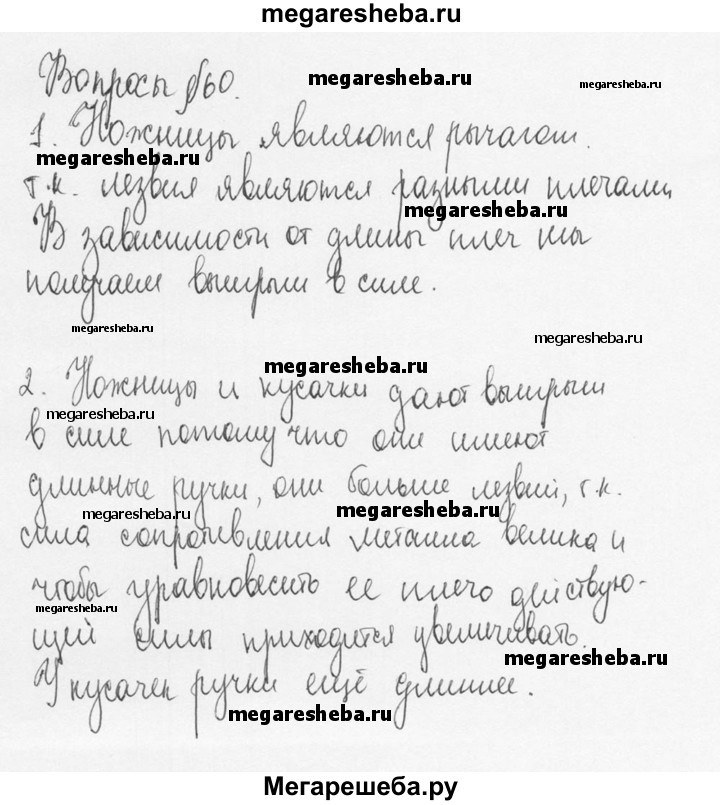 megaresheba.ru
Вопросы §60.
megaresheba.ru
megaresheba.ru
1. Ножницы являются рычагом.
megaresheba.ru
т.к. лезвия являются разными плечами
megaresheba.ru
В зависимости от длины плеч мы
получаем выигрыш в силе.
megaresheba.ru
megaresheba.ru
megaresheba.ru
2. Ножницы и кусачки дают выигрыш
megaresheba.ru
в силе потому что они имеют
длинные ручки, они больше лезвий, т.к.
megaresheba.ru
megaresheba.ru
сила сопротивления металла велика и
чтобы уравновесить ее плечо действую-
megaresheba.ru
щей силы приходится увеличивать.
megaresheba.ru
У кусачек ручки ещё длиннее.
megaresheba.ru
Мегарешеба.ру